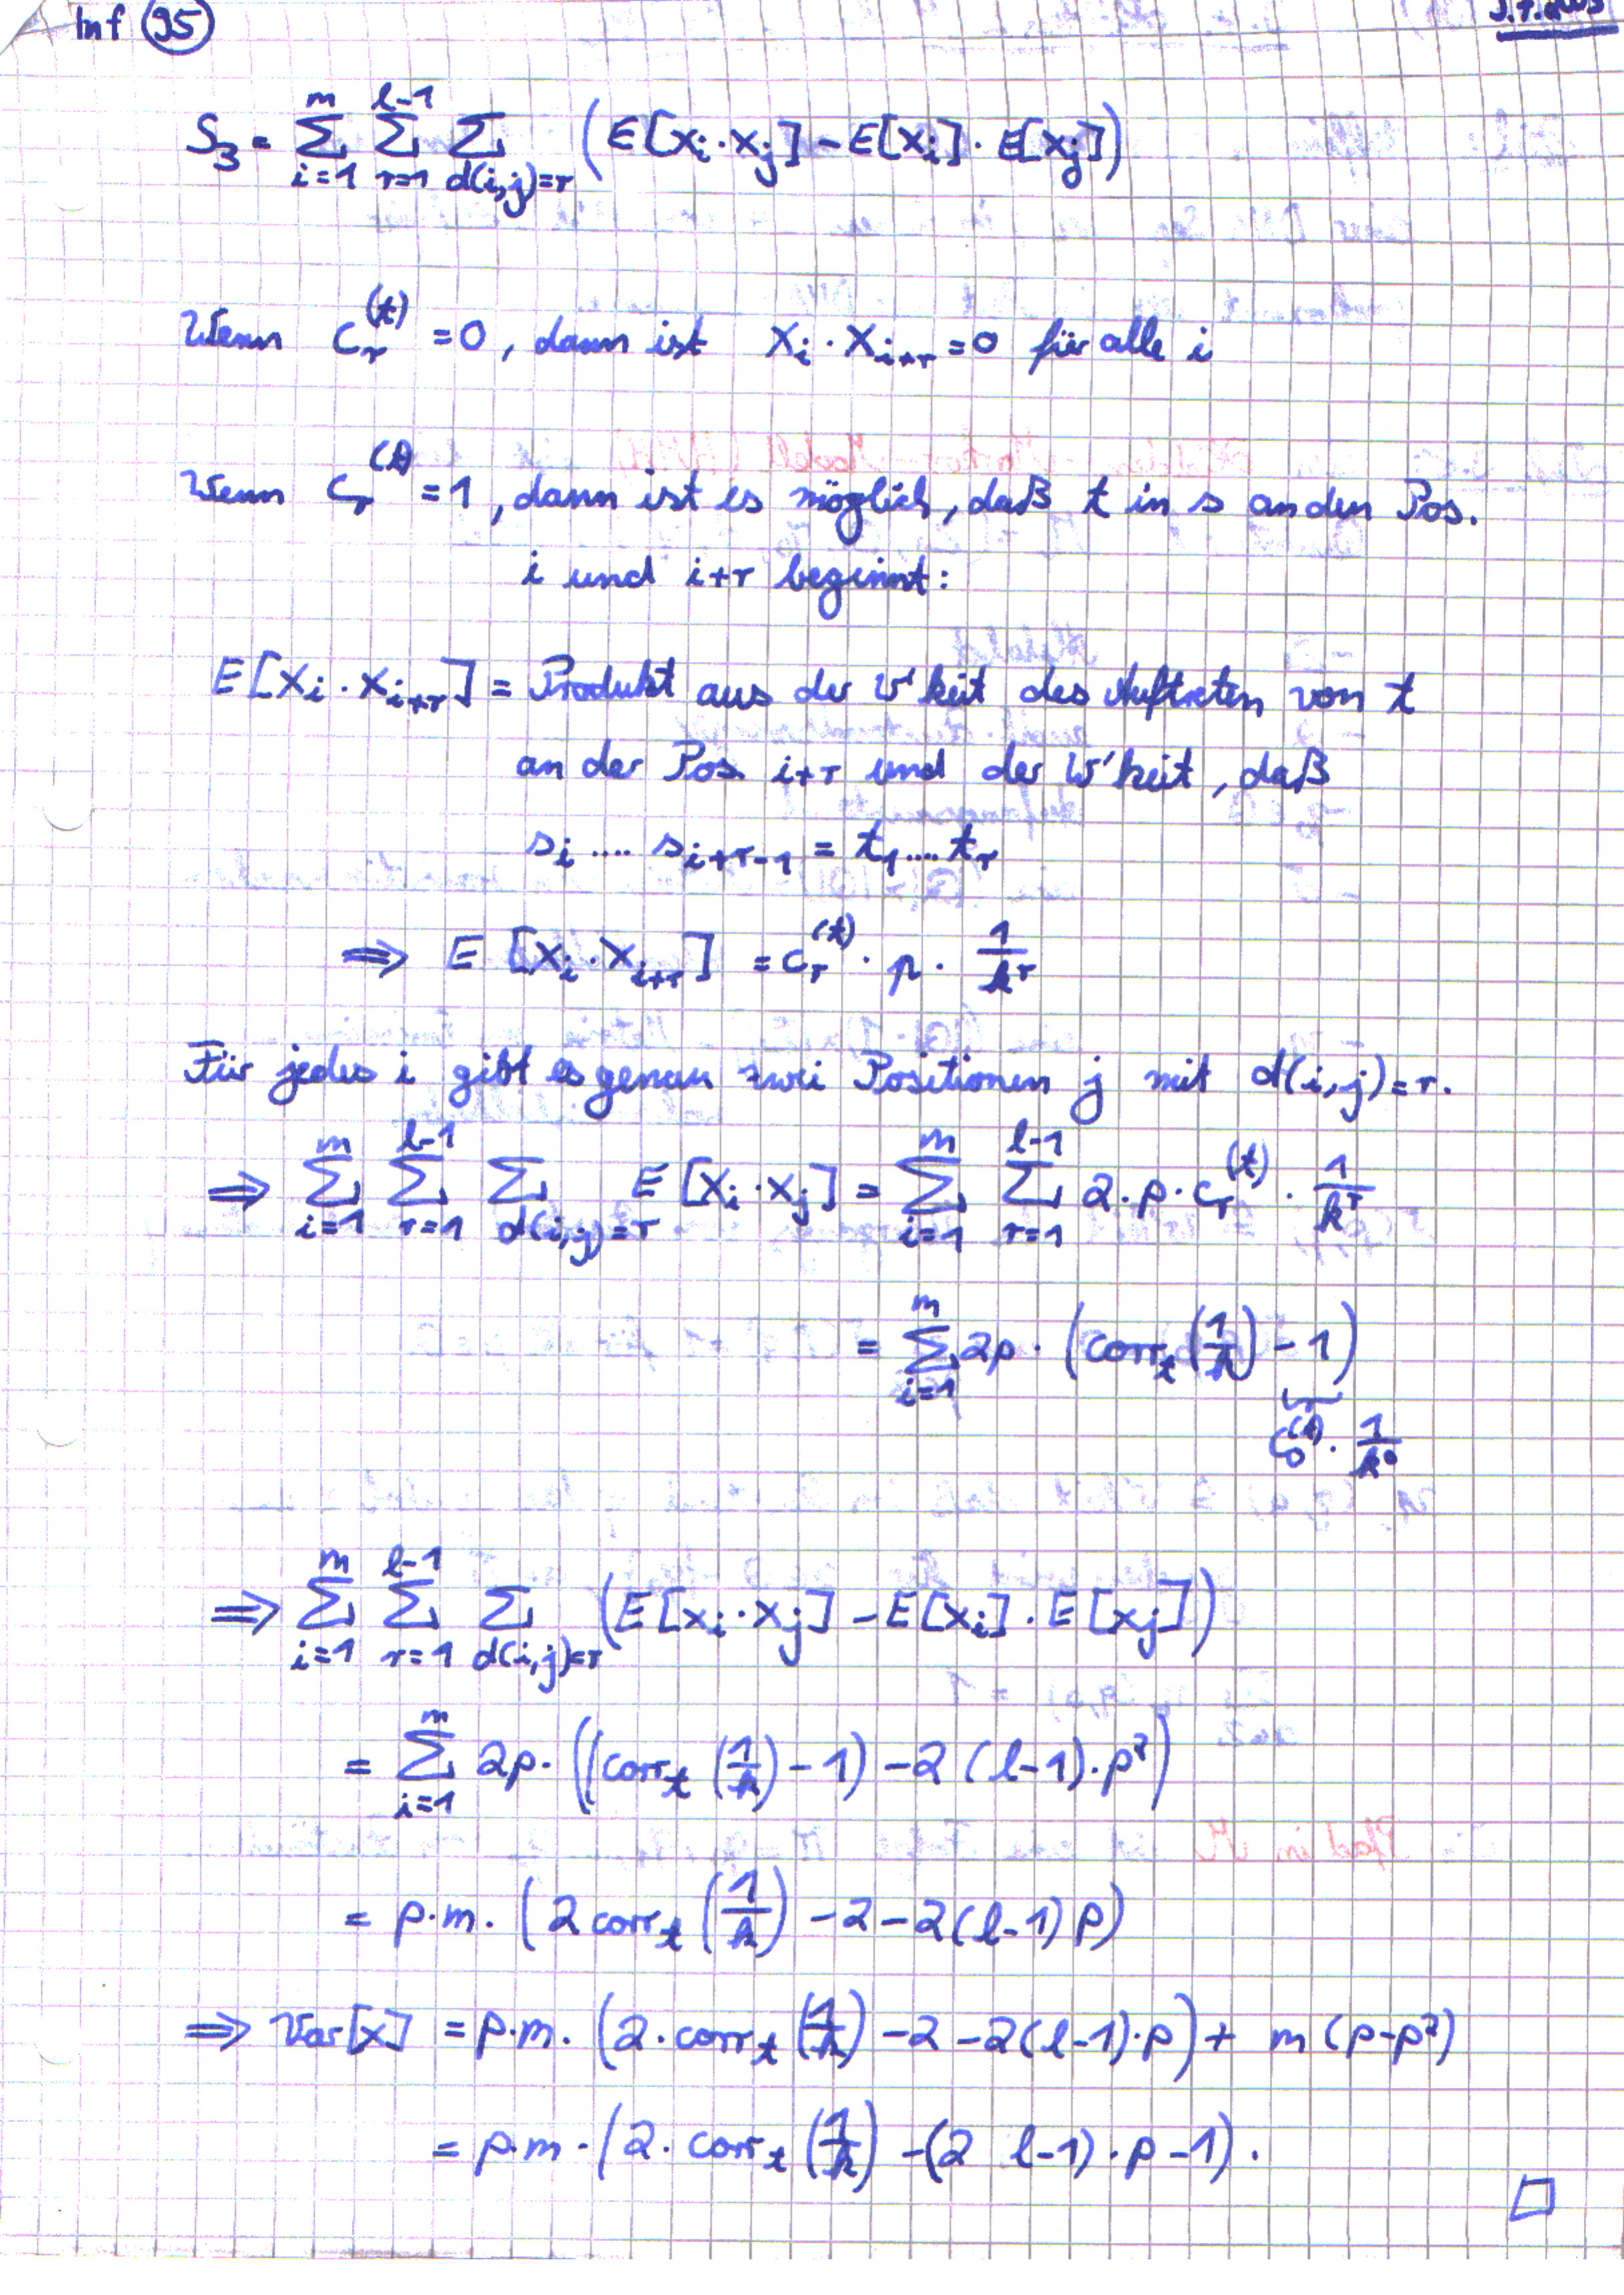 Inf 95
S_3 = \sum_{i=1}^{m} \sum_{r=1}^{l-1} \sum_{d(i,j)=r} (E[X_i \cdot X_j] - E[X_i] \cdot E[X_j])
Wenn c_r^{(t)} = 0, dann ist X_i \cdot X_{i+r} = 0 für alle i
Wenn c_r^{(t)} = 1, dann ist es möglich, daß t in s an den Pos.
i und i+r beginnt:
E[X_i \cdot X_{i+r}] = Produkt aus der W'keit des Auftreten von t
an der Pos. i+r und der W'keit, daß
s_i .... s_{i+r-1} = t_1 .... t_r
⇒ E[X_i \cdot X_{i+r}] = c_r^{(t)} \cdot p \cdot \frac{1}{k^r}
Für jedes i gibt es genau zwei Positionen j mit d(i,j)=r.
⇒ \sum_{i=1}^{m} \sum_{r=1}^{l-1} \sum_{d(i,j)=r} E[X_i \cdot X_j] = \sum_{i=1}^{m} \sum_{r=1}^{l-1} 2 \cdot p \cdot c_r^{(t)} \cdot \frac{1}{k^r}
= \sum_{i=1}^{m} 2p \cdot (corr_t(\frac{1}{k}) - 1)
c_0^{(t)} \cdot \frac{1}{k^0}
⇒ \sum_{i=1}^{m} \sum_{r=1}^{l-1} \sum_{d(i,j)=r} (E[X_i \cdot X_j] - E[X_i] \cdot E[X_j])
= \sum_{i=1}^{m} 2p \cdot ((corr_t(\frac{1}{k}) - 1) - 2(l-1) \cdot p^2)
= p \cdot m \cdot (2 corr_t(\frac{1}{k}) - 2 - 2(l-1)p)
⇒ Var[X] = p \cdot m \cdot (2 \cdot corr_t(\frac{1}{k}) - 2 - 2(l-1) \cdot p) + m(p-p^2)
= p \cdot m \cdot (2 \cdot corr_t(\frac{1}{k}) - (2 l-1) \cdot p - 1).
□